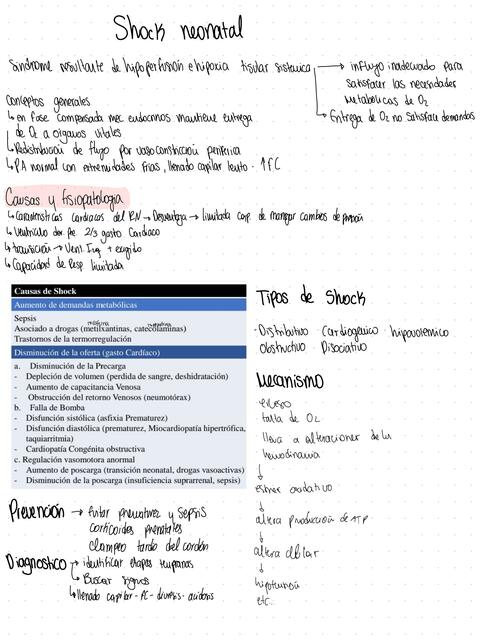 Shock neonatal
Síndrome resultante de hipoperfusión e hipoxia tisular sistemica
→ influjo inadecuado para
satisfacer las necesidades
metabolicas de O2
→ Entrega de O2 no satisface demandas
Conceptos generales
↳ en fase compensada mec endocrinos mantiene entrega
de O2 a organos vitales
↳ Redistribución de flujo por vasoconstricción periferica
↳ PA normal con extremidades frias, llenado capilar lento · ↑FC
Causas y fisiopatologia
↳ Caracteristicas cardiacas del RN → Desventaja → limitada cap. de manejar cambios de presión
↳ Ventriculo der. 2/3 gasto Cardiaco
↳ transición → Vent. Izq + exigido
↳ Capacidad de resp limitada
Causas de Shock
Aumento de demandas metabólicas
Sepsis
Asociado a drogas (metilxantinas, catecolaminas)
Trastornos de la termorregulación
Disminución de la oferta (gasto Cardíaco)
a. Disminución de la Precarga
- Depleción de volumen (perdida de sangre, deshidratación)
- Aumento de capacitancia Venosa
- Obstrucción del retorno Venosos (neumotórax)
b. Falla de Bomba
- Disfunción sistólica (asfixia Prematurez)
- Disfunción diastólica (prematurez, Miocardiopatía hipertrófica,
taquiarritmia)
- Cardiopatía Congénita obstructiva
c. Regulación vasomotora anormal
- Aumento de poscarga (transición neonatal, drogas vasoactivas)
- Disminución de la poscarga (insuficiencia suprarrenal, sepsis)
Tipos de Shock
· Distributivo · Cardiogenico · hipovolémico
· Obstructivo · Disociativo
Mecanismo
falta de O2
lleva a alteraciones de la
hemodinamia
↓
estres oxidativo
↓
altera producción de ATP
↓
altera
↓
hipotensión
↓
etc.
Prevención → Evitar prematurez y sepsis
corticoides prenatales
clampeo tardio del cordón
Diagnostico → identificar etapas tempranas
↳ Buscar signos
↳ llenado capilar - FC - diuresis - acidosis